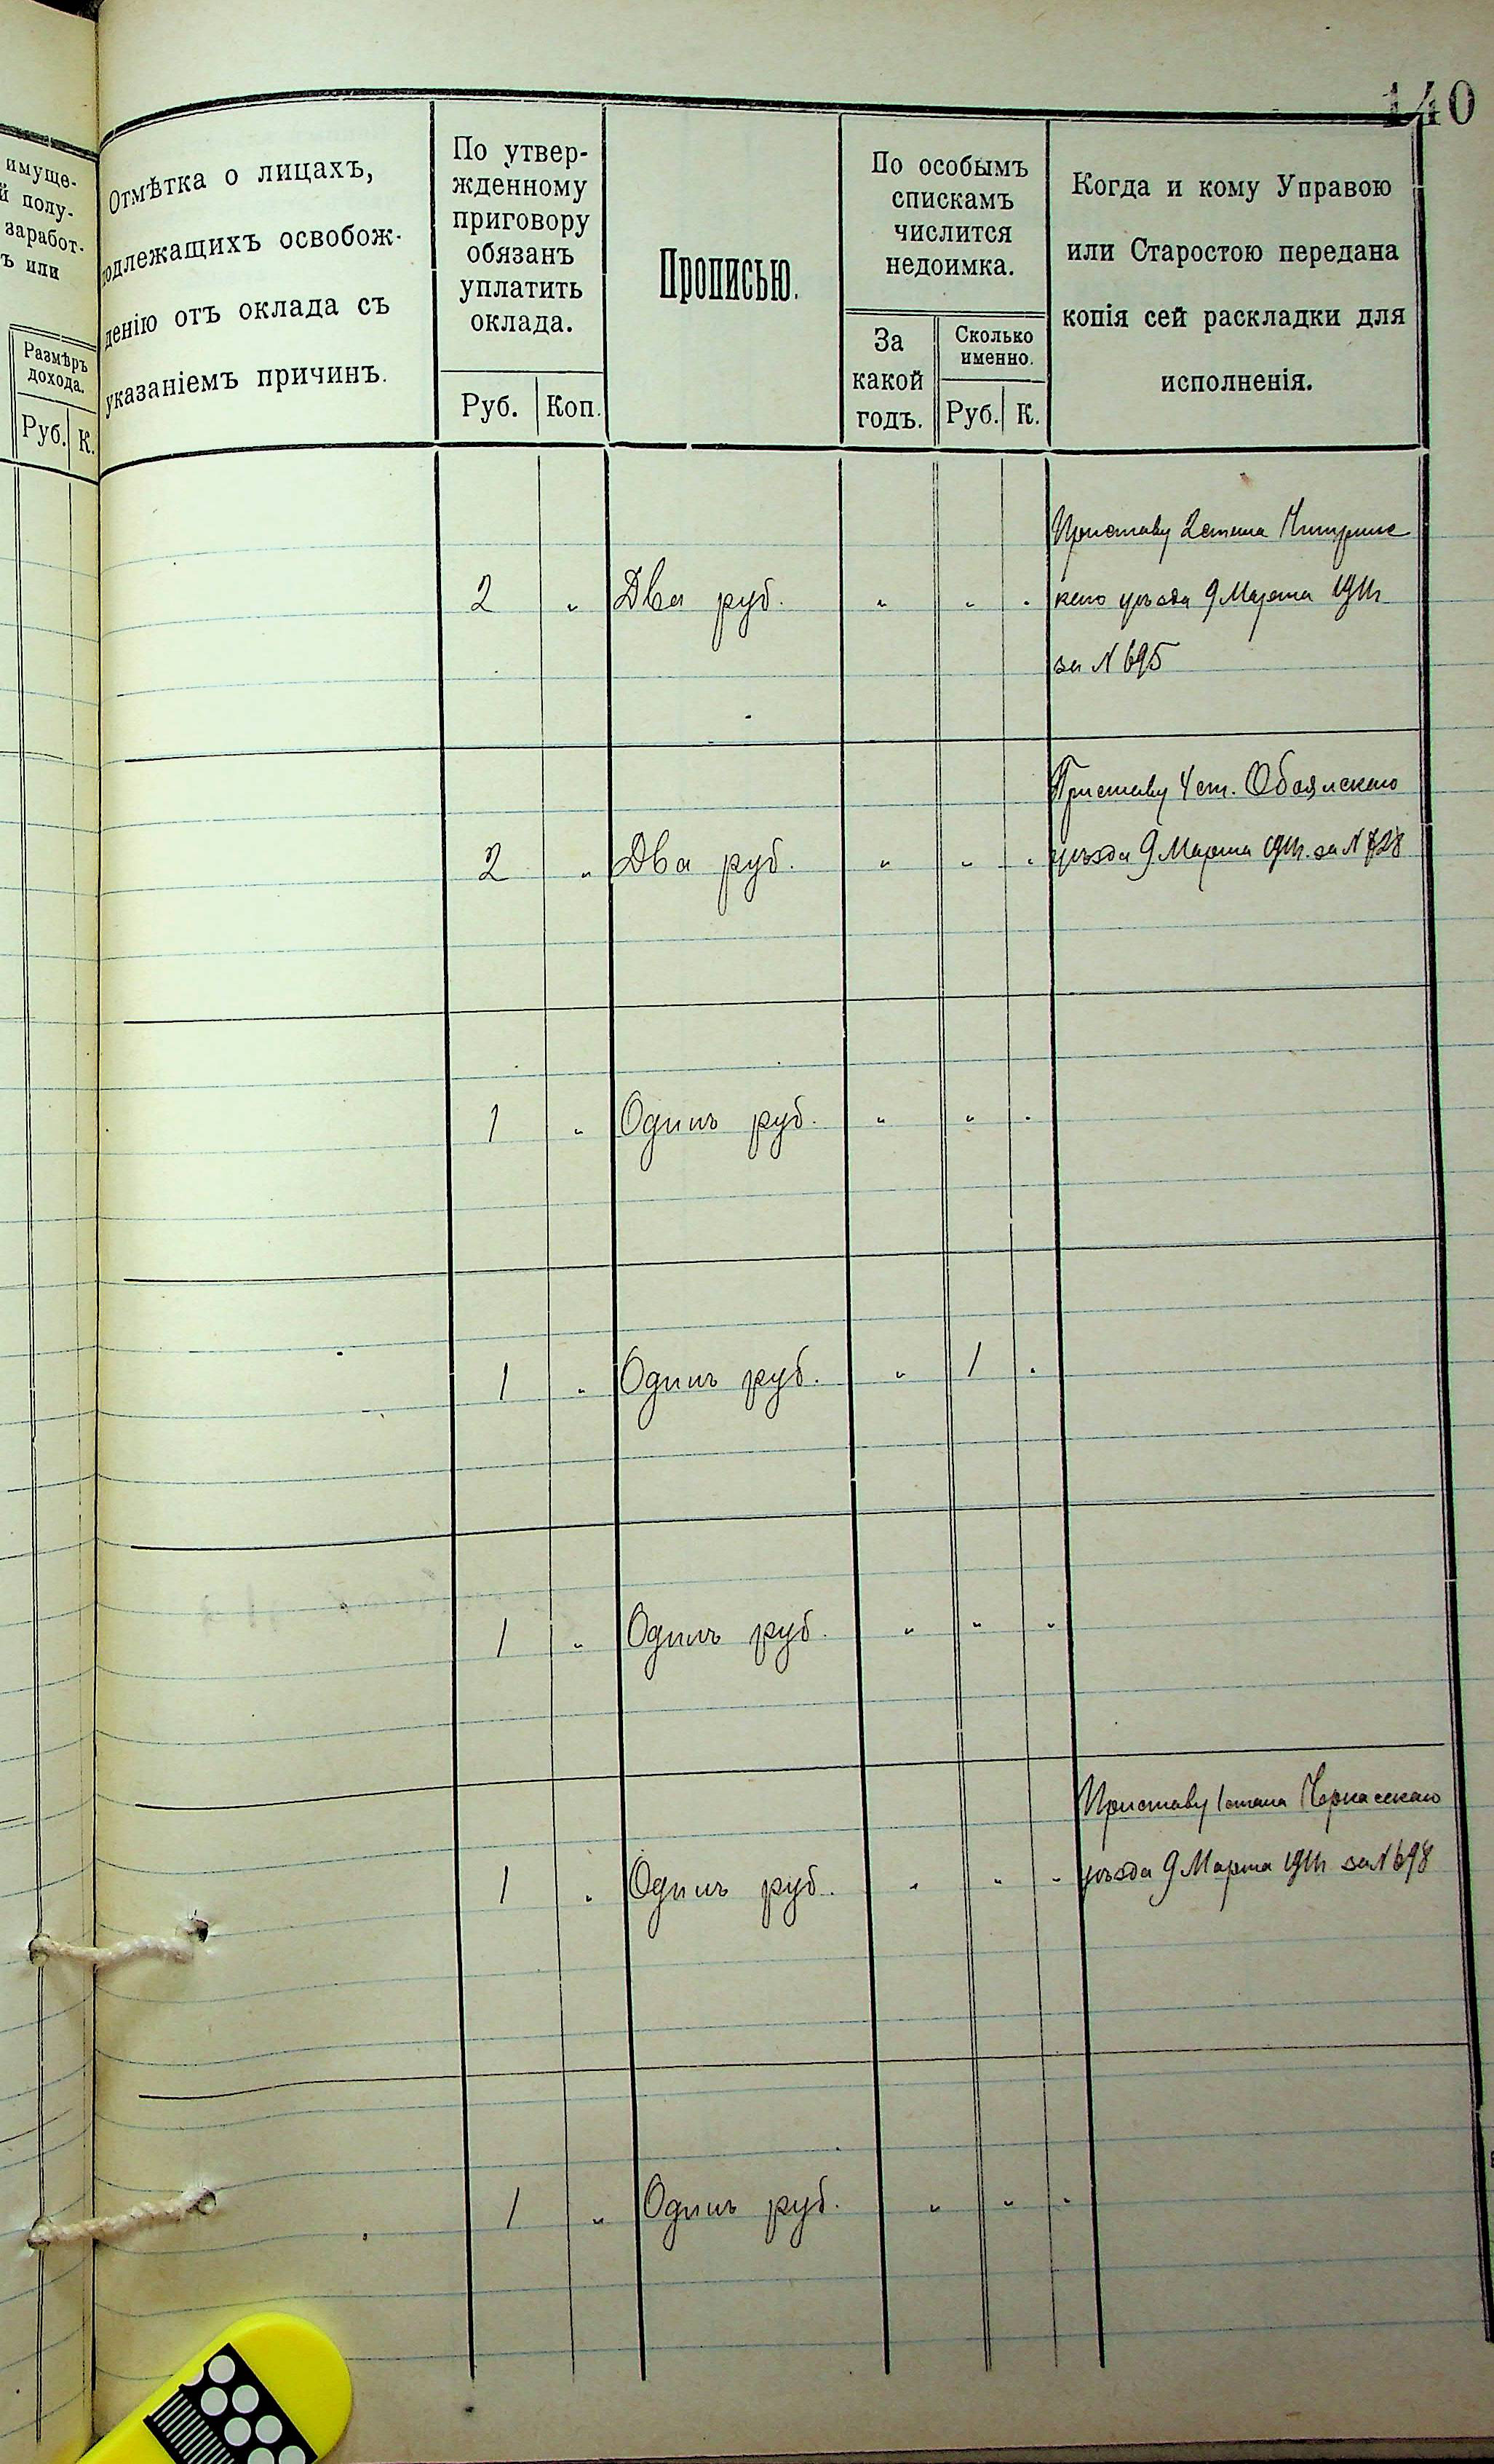 140
имуще-
й полу-
заработ-
ъ или
Размѣръ
дохода.
Руб. К.
Отмѣтка о лицахъ,
одлежащихъ освобож-
денію отъ оклада съ
указаніемъ причинъ.
По утвер-
жденному
приговору
обязанъ
уплатить
оклада.
Руб. Коп.
Прописью.
По особымъ
спискамъ
числится
недоимка.
За
какой
годъ.
Сколько
именно.
Руб. К.
Когда и кому Управою
или Старостою передана
копія сей раскладки для
исполненія.
Приставу 2 стана Чигринс
2 " Два руб. " " " каго уѣзда 9 Марта 1911г
за N 695
Приставу 4 ст. Обоянскаго
2 " Два руб. " " " уѣзда 9 Марта 1911г. за N 728
1 " Одинъ руб. " " "
1 " Одинъ руб. " 1 "
1 " Одинъ руб. " " "
Приставу 1 стана Черкасскаго
1 " Одинъ руб. " " " уѣзда 9 Марта 1911г за N 698
1 " Одинъ руб. " " "